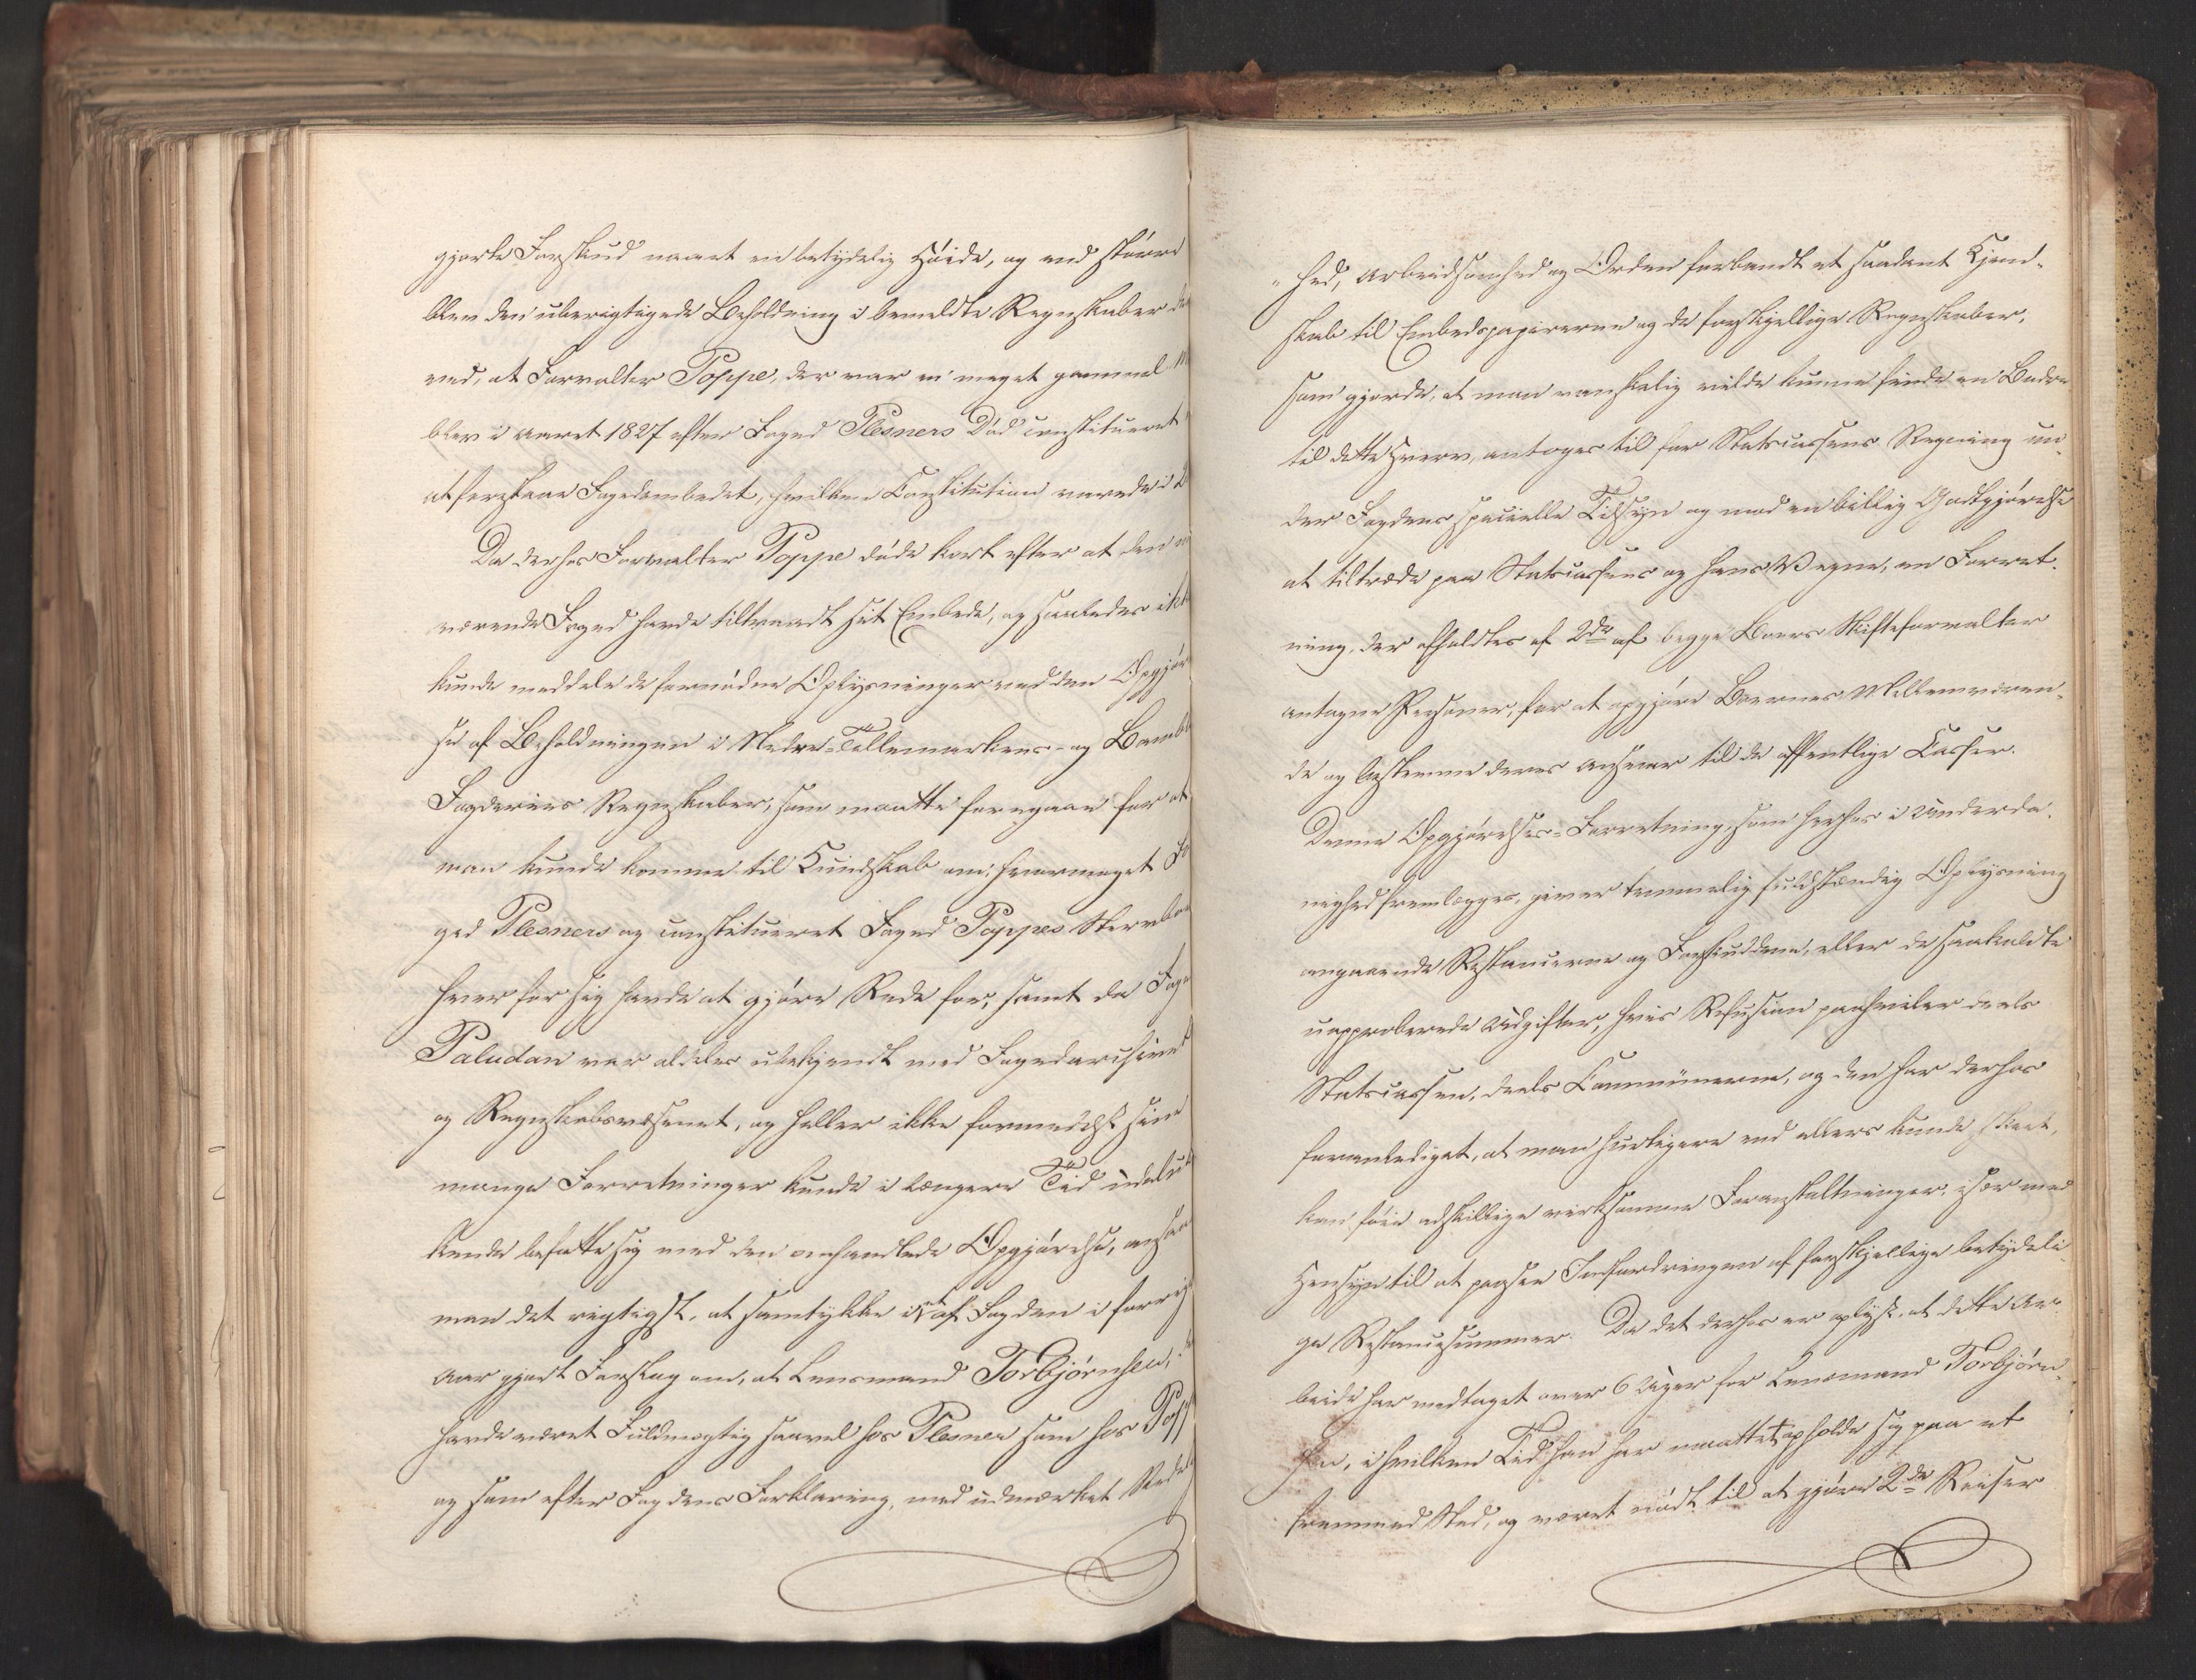 gjorte Forskud naaet en betydelig Høide, og end større
blev den uberigtigede Beholdning i bemeldte Regnskaber der
ved, at Forvalter Poppe, der var en meget gammel M
blev i Aaret 1827 efter Foged Plesners Død constitueret
at forestaae Fogedembedet, hvilken Constitution varede i 2
Da derhos Forvalter Poppe døde kort efter at den n
værende Foged havde tiltraadt sit Embede, og saaledes ikke
kunde meddele de fornødne Oplysninger ved den Opgjør
se af Beholdningen i Nedre-Tellemarkens- og Bamble
Fogderies Regnskaber, som maatte foregaae for at
man kunde komme til Kundskab om, hvormeget Fo
ged Plesners og constitueret Foged Poppes Sterv
hver for sig havde at gjøre Rede for, samt da Foged
Paludan var aldeles ubekjendt med Fogedarchivet
og Regnskabsvæsenet, og heller ikke formedelst sine
mange Forretninger kunde i længere Tid udeluk
kende befatte sig med den omhandlede Opgjørelse, ansaae
man det rigtigst, at samtykke i et af Fogden i forrige
Aar gjort Forslag om, at Lensmand Torbjørnsen,
havde været Fuldmægtig saavel hos Plesner som hos Popp
og som efter Fogdens Forklaring, med udmærket Redelig
"hed, Arbeidsomhed og Orden forbandt et saadant Kjend-
skab til Embedspapirerne og de forskjellige Regnskaber,
som gjorde, at man vanskelig vilde kunne finde en Bedre
til dette Hverv, antoges til for Statscassens Regning un-
der Fogdens specielle Tilsyn og mod en billig Godtgjørelse
at tiltræde paa Statscassens og hans Vegne, en Forret-
ning, der afholdtes af 2de af begge Boers Skifteforvalter
antagne Personer, for at opgjøre Boernes Mellemværen-
de og bestemme deres Ansvar til de offentlige Casser.
Denne Opgjørelses-Forretning, som herhos i Underda-
nighed fremlægges, giver temmelig fuldstændig Oplysning
angaaende Restancerne og Forskuddene, eller de saakaldte
uapproberede Udgifter, hvis Refusion paahviler deels
Statscassen, deels Communerne, og den har derhos
foranlediget, at man hurtigere end ellers kunde skeet,
kan føie adskillige virksomme Foranstaltninger, især med
Hensyn til at paasee Indfordringen af forskjellige betydeli-
ge Restancesummer. Da det derhos er oplyst, at dette Ar-
beide har medtaget over 6 Uger for Lensmand Torbjørn-
sen, i hvilken Tid han har maattet opholde sig paa et
fremmed Sted, og været nødt til at gjøre 2de Reiser